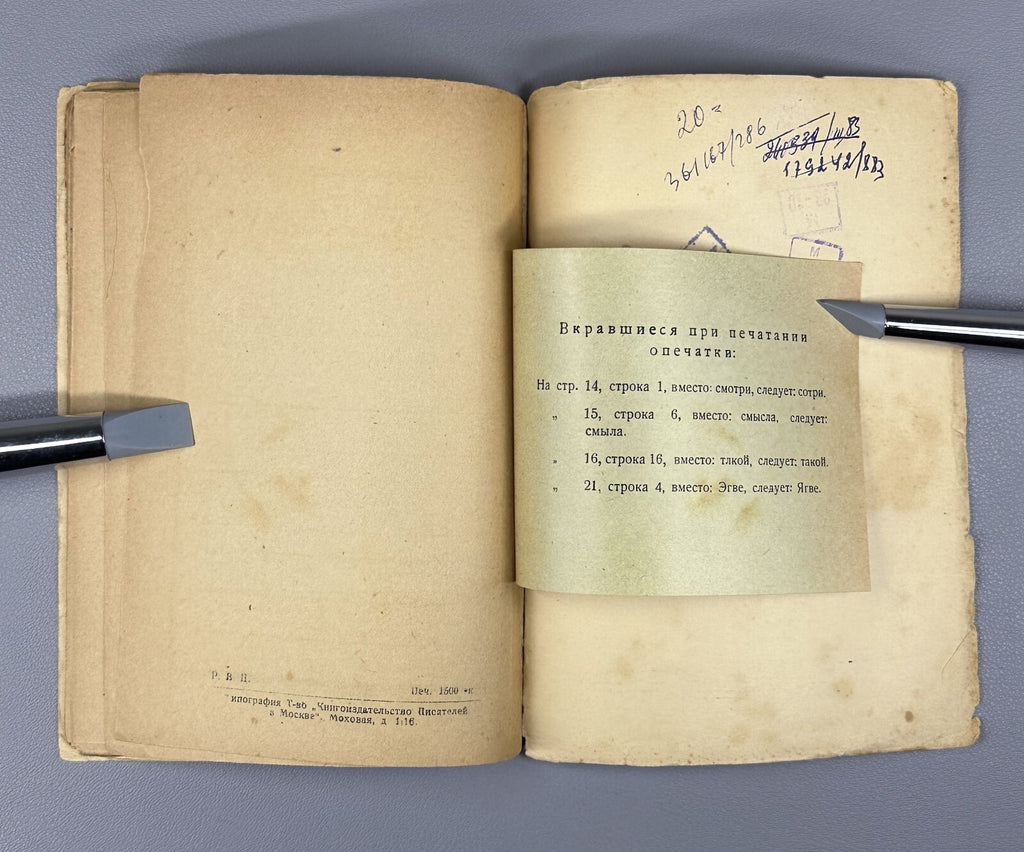 Р. В. Ц.
Печ. 1500 эк
Типография Т-во „Книгоиздательство Писателей
в Москве". Моховая, д 1-16.
20=
361167/286
175242/883
М
Вкравшиеся при печатании
опечатки:
На стр. 14, строка 1, вместо: смотри, следует: сотри.
„ 15, строка 6, вместо: смысла, следует:
смыла.
„ 16, строка 16, вместо: тлкой, следует: такой.
„ 21, строка 4, вместо: Эгве, следует: Ягве.